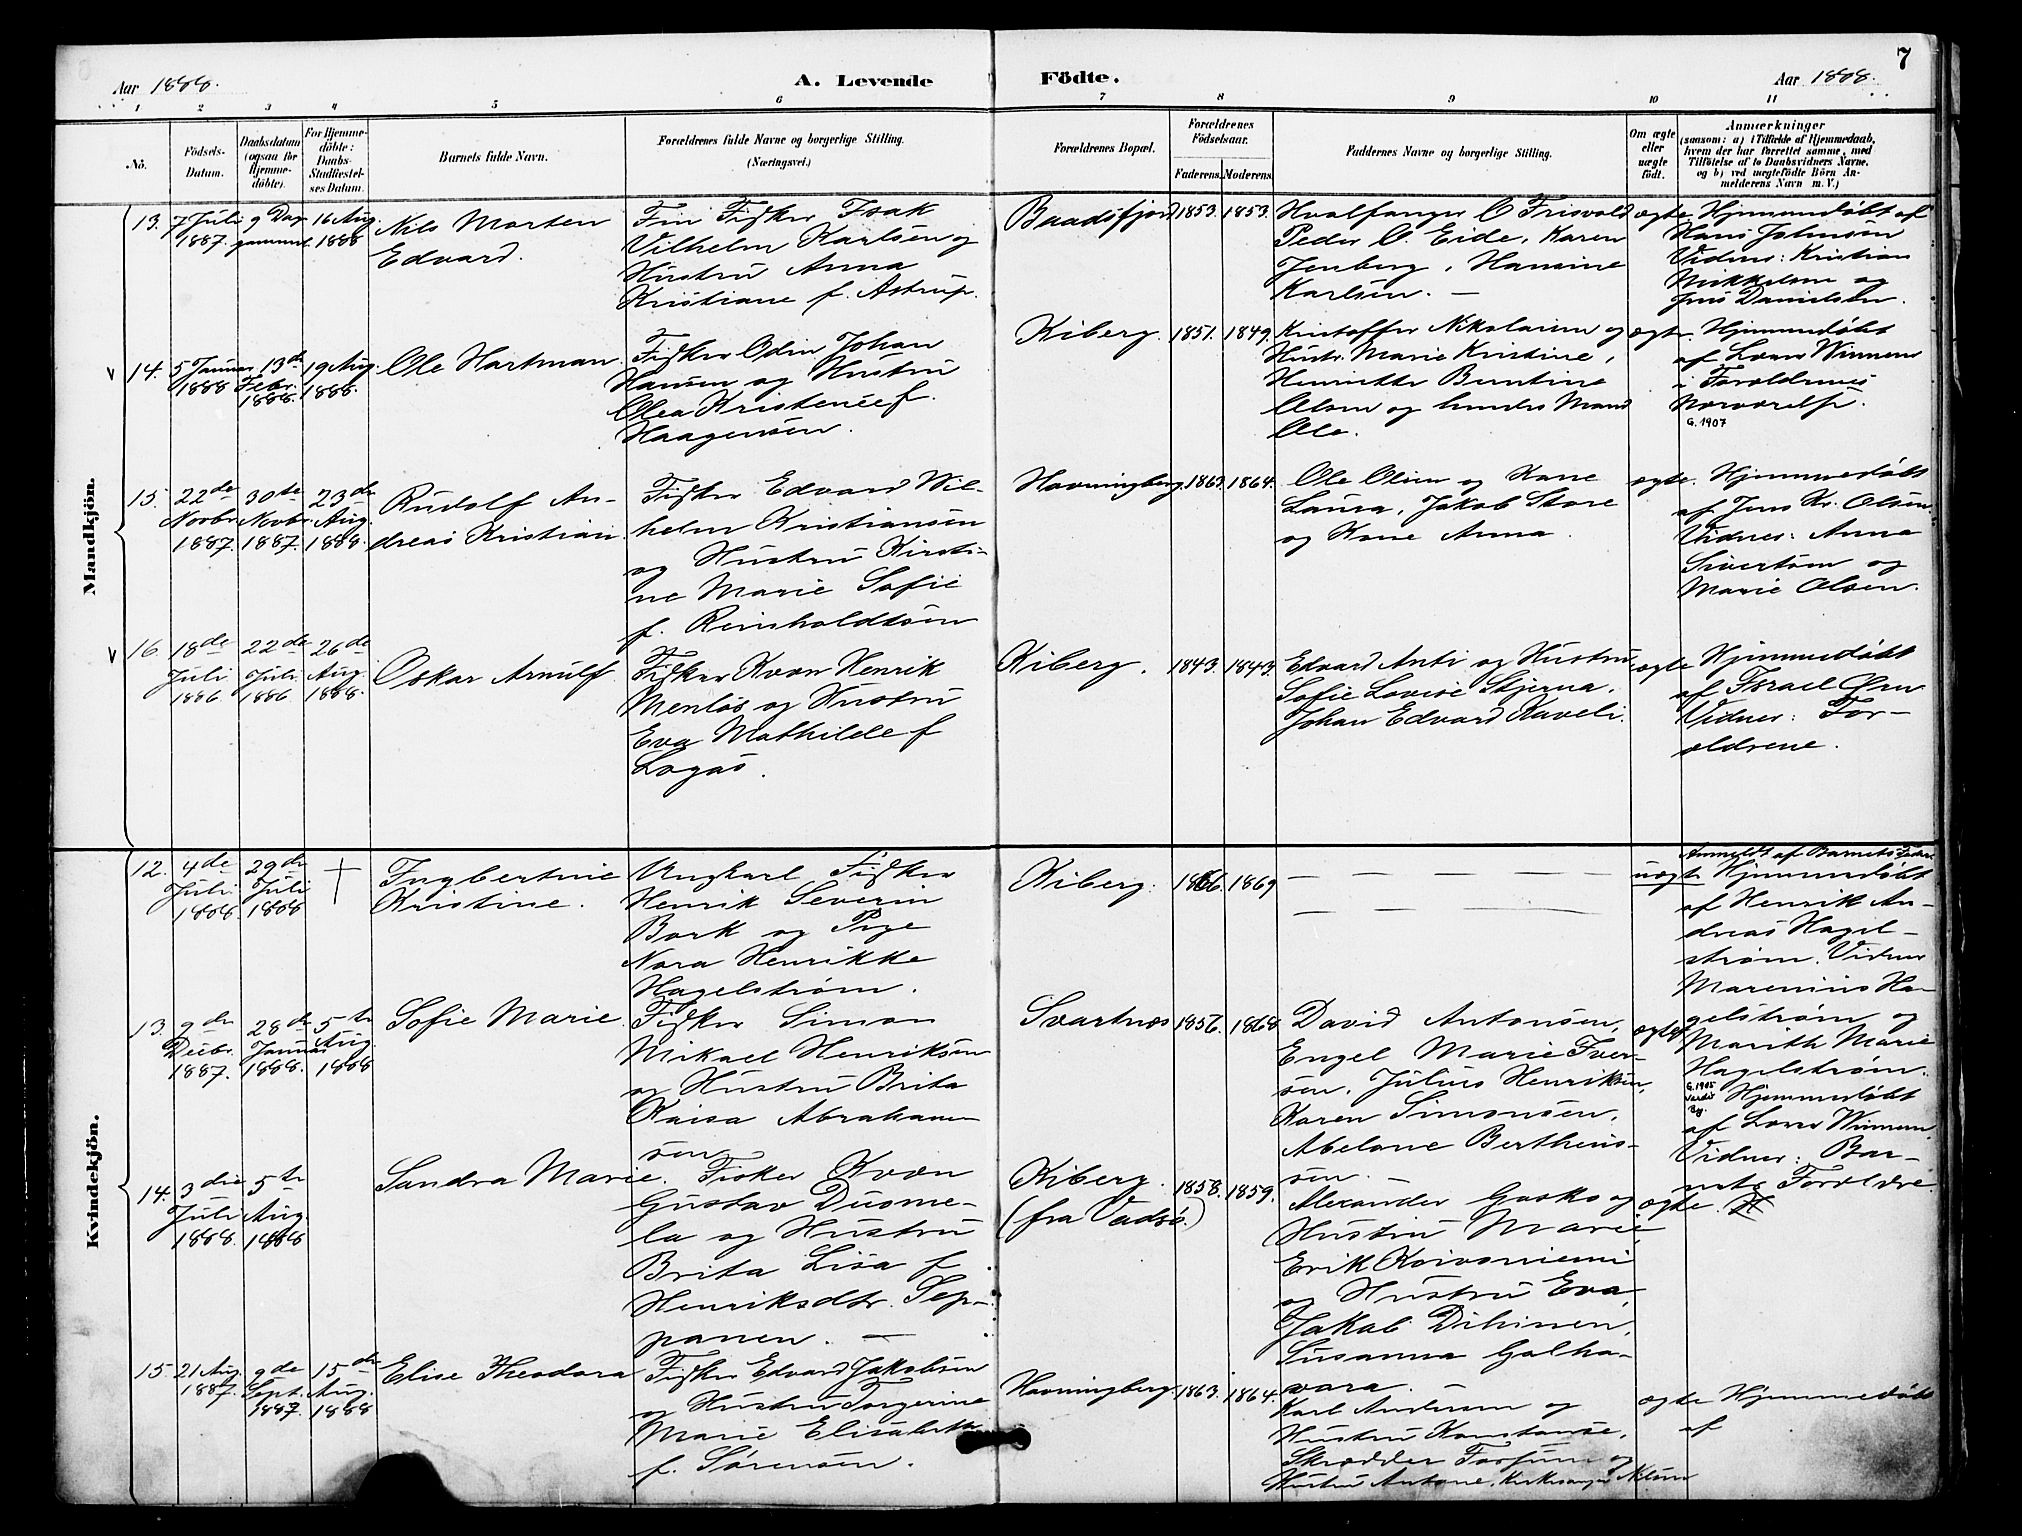 7
Aar 1888.
A. Levende
Födte.
Aar 1888.
1 2 3 4 5 6 7 8 9 10 11
No.
Födsels-
Datum.
Daabsdatum
(ogsaa for
Hjemme-
döbte).
For Hjemme-
döbte:
Daabs-
Stadfæstel-
ses Datum.
Barnets fulde Navn.
Forældrenes fulde Navne og borgerlige Stilling.
(Næringsvei.)
Forældrenes Bopæl.
Forældrenes
Födselsaar.
Faderens. Moderens.
Faddernes Navne og borgerlige Stilling.
Om ægte
eller
uægte
födt.
Anmærkninger
(saasom: a) i Tilfælde af Hjemmedaab,
hvem der har forrettet samme, med
Tilföielse af to Daabsvidners Navne,
og b) ved uægtefödte Börn An-
melderens Navn m. V.)
Mandkjön.
13.
7 Juli
1887.
9 Dag
gammel.
16 Aug.
1888
Nils Morten
Edvard.
Fin Fisker Isak
Vilhelm Karlsen og
Hustru Anna
Kristiane f. Astrup.
Baadsfjord
1853. 1853.
Hvalfanger O Frisvold
Peder O. Eide, Karen
Jenberg, Hansine
Karlsen. —
ægte.
Hjemmedøbt af
Hans Johnsen
Vidner: Kristian
Mikkelsen og
Jens Danielsen.
14.
5 Januar
1888
13de
Febr.
1888.
19 Aug.
1888.
Ole Hartman.
Fisker Odin Johan
Hansen og Hustru
Olea Kristense f.
Haagensen.
Kiberg.
1851. 1849.
Kristoffer Nikolaisen og
Hustr. Marie Kristine,
Henriette Buntine
Olsen og hendes Mand
Ole.
ægte.
Hjemmedøbt
af Lars Winnem
i Forældrenes
Nærværelse.
G. 1907
15.
22de
Novbr.
1887.
30te
Novbr.
1887.
23de
Aug.
1888.
Rudolf An-
dreas Kristian.
Fisker Edvard Wil-
helm Kristiansen
og Hustru Kirsti-
ne Marie Sofie
f. Reinholdtsen
Havningberg.
1863. 1864.
Ole Olsen og Kone
Laura, Jakob Store
og Kone Anna.
ægte.
Hjemmedøbt
af Jens Kr. Olsen.
Vidner: Anna
Sivertsen og
Marie Olsen.
16.
18de
Juli
1886
22de
Juli
1886
26de
Aug.
1888.
Oskar Arnulf
Fisker Kvæn Henrik
Menløs og Hustru
Eva Mathilde f
Logas.
Kiberg.
1843. 1843.
Edvard Anti og Hustru
Sofie Lovise Stjerna.
Johan Edvard Kaveli.
ægte
Hjemmedøbt
af Israel Ørn
Vidner: For-
ældrene.
Kvindekjön.
12.
4de
Juli
1888.
29de
Juli
1888
†
Ingbertine
Kristine.
Ungkarl Fisker
Henrik Severin
Bork og Pige
Nora Henrikke
Hagelstrøm.
Kiberg.
1866. 1869
— — — — —
— — — —
uægte
Anmeldt af Barnets Fader
Hjemmedøbt
af Henrik An-
dreas Hagel-
strøm. Vidner
Marenius Ha-
gelstrøm og
Marith Marie
Hagelstrøm.
13.
9de
Decbr.
1887.
28de
Januar
1888.
5te
Aug.
1888
Sofie Marie.
Fisker Simon
Mikael Henriksen
og Hustru Brita
Kaisa Abraham-
sen.
Svartnæs
1856. 1868.
David Antonsen,
Engel Marie Iver-
sen, Julius Henriksen,
Karen Simonsen,
Abelone Berthius-
sen. —
ægte
G. 1905
Vardø
By.
Hjemmedøbt
af Lars Winnem.
Vidner: Bar-
nets Forældre.
14.
3die
Juli
1888.
5te
Aug.
1888
Sandra Marie.
Fisker Kvæn
Gustav Dusme-
la og Hustru
Brita Lisa f.
Henriksdtr. Sep-
panen. —
Kiberg.
(fra Vadsø.)
1858. 1859.
Alexander Gasko og
Hustru Marie,
Erik Koivoniemi
og Hustru Eva,
Jakob Dihinen,
Susanna Galha-
vara. —
ægte.
15.
21 Aug.
1887.
9de
Sept.
1887.
15de
Aug.
1888
Elise Theodora
Fisker Edvard Jakobsen
og Hustru Torgerine
Marie Elisabeth
f. Sørensen.
Havningberg.
1863. 1864.
Karl Andersen og
Hustru Konstanse,
Skrædder Forsum og
Hustru Antone, Kirkesanger Nilsen
ægte
Hjemmedøbt
af